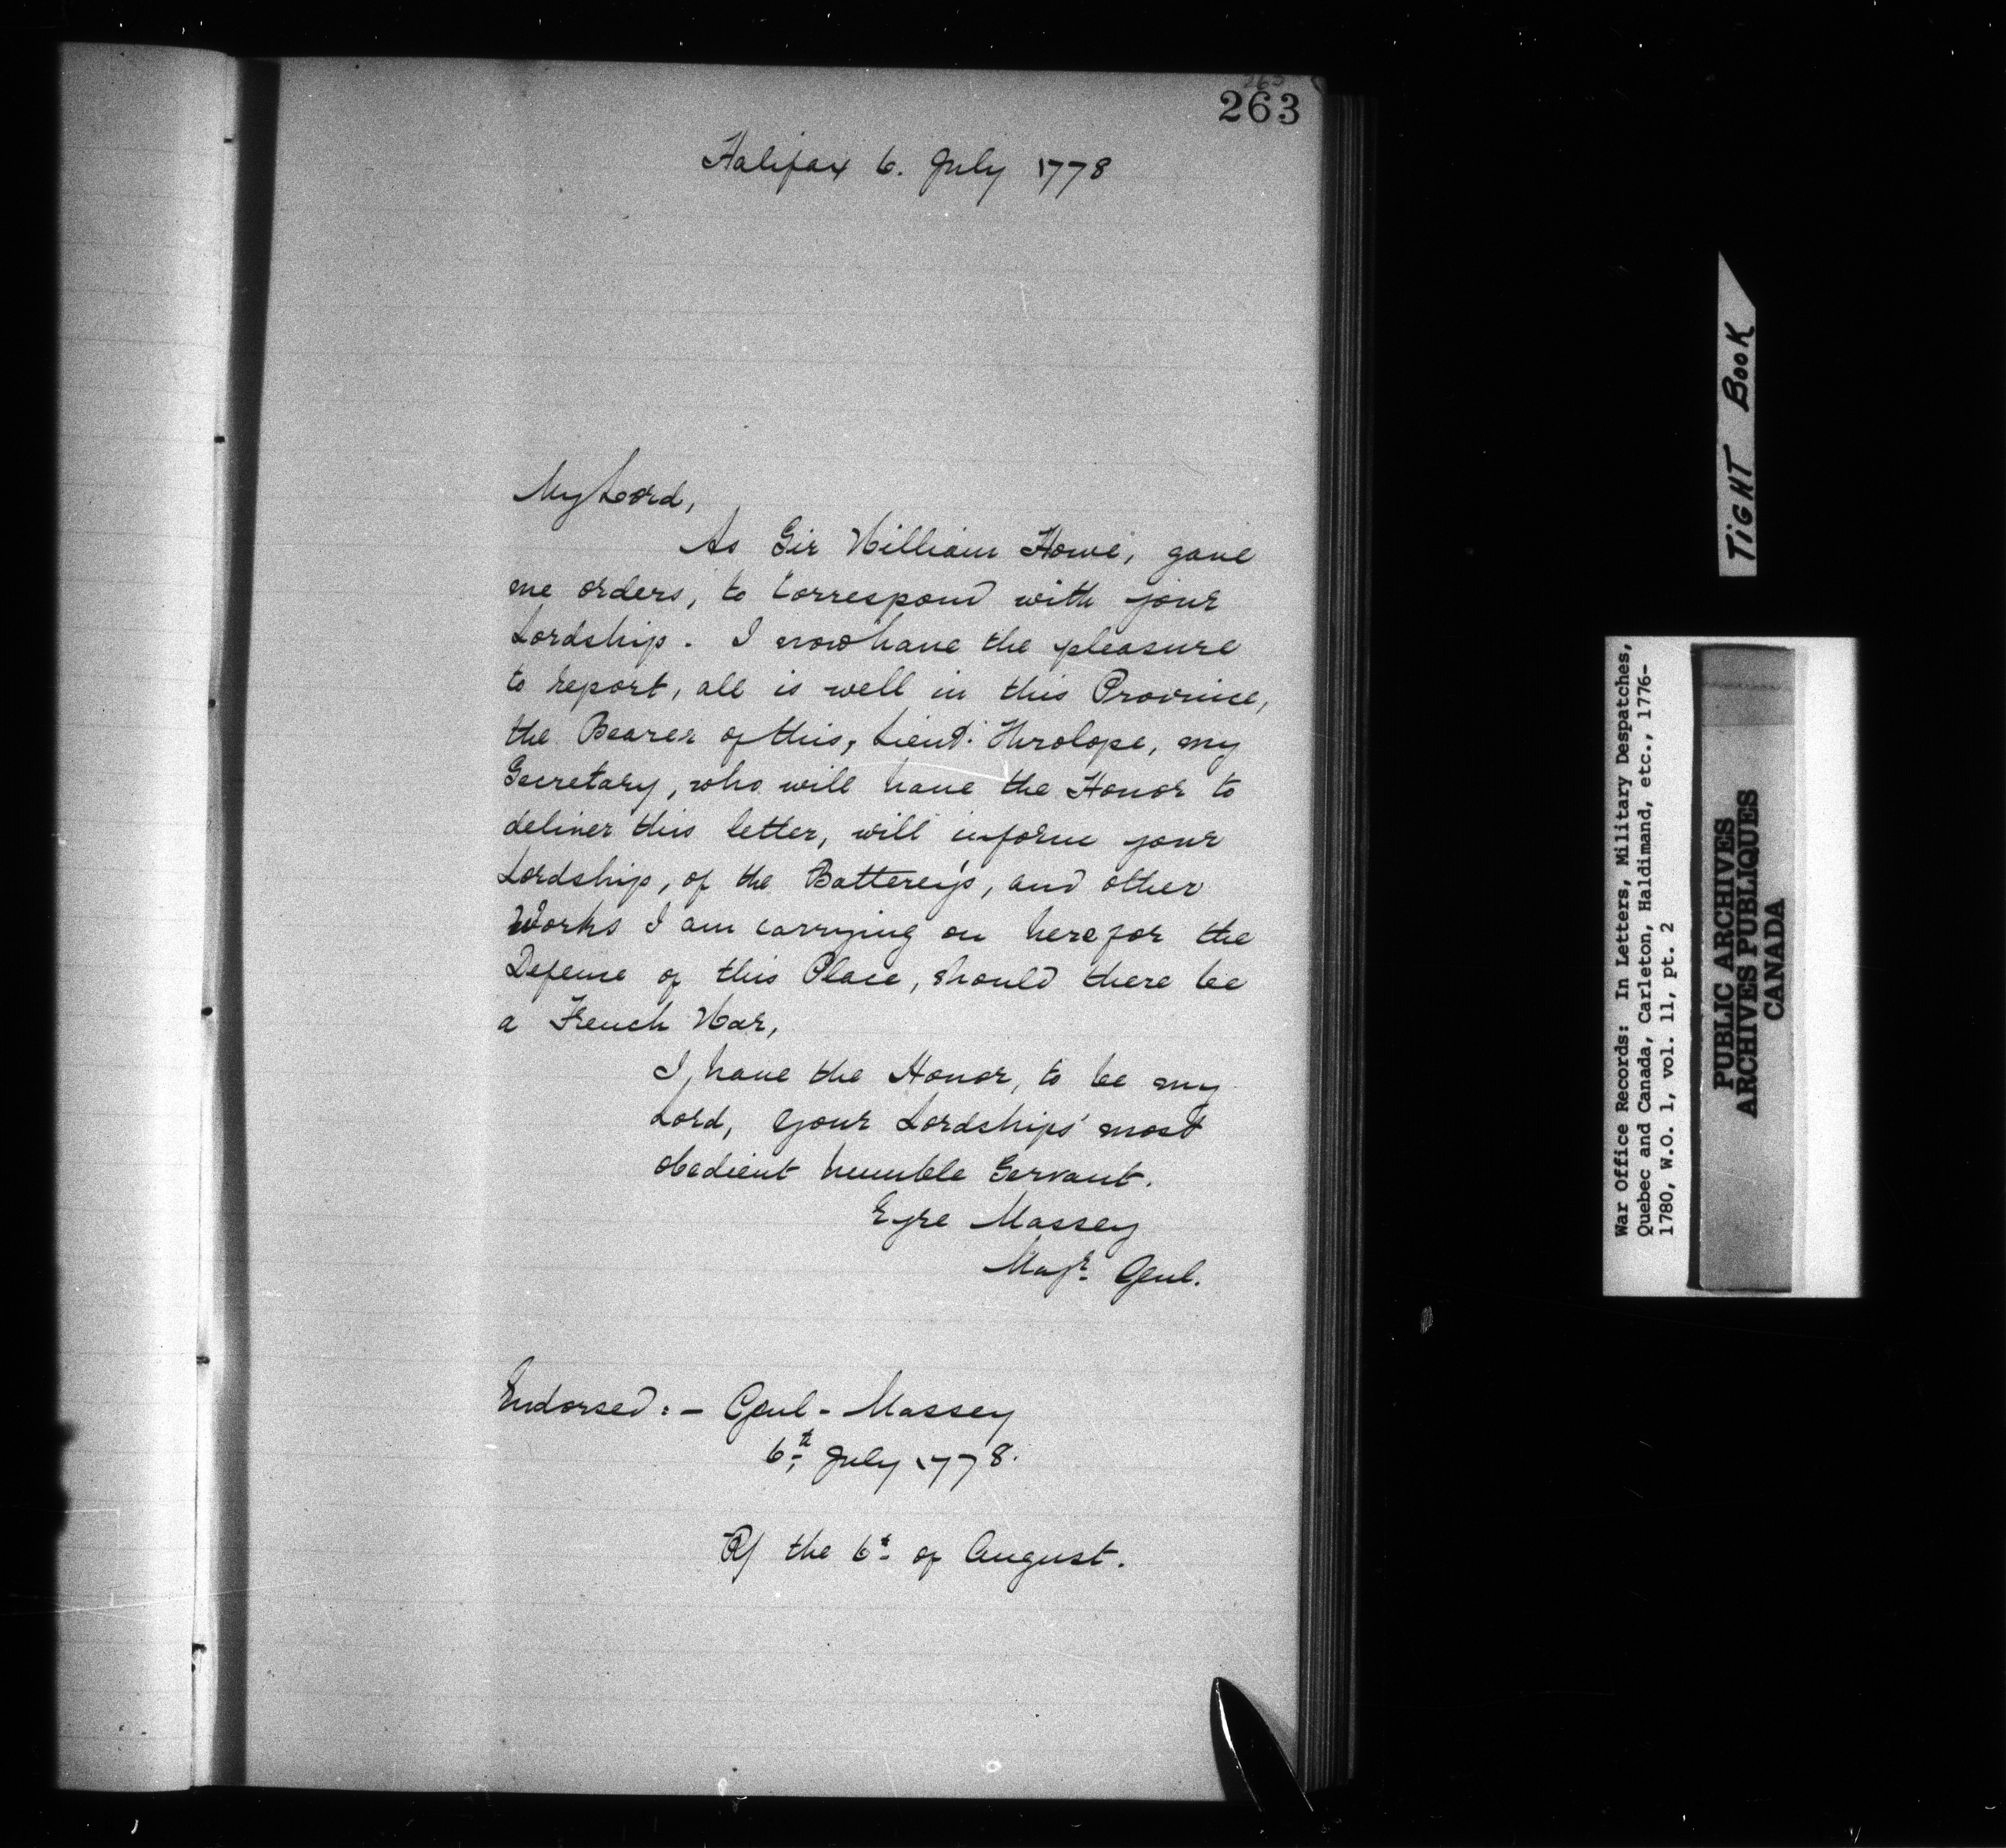 263
Halifax 6. July 1778
My Lord,
As Sir William Howe, gave
me orders, to Correspond with your
Lordship. I now have the pleasure
to report, all is well in this Province,
the Bearer of this, Lieut. Throlope, my
Secretary, who will have the Honor to
deliver this letter, will inform your
Lordship, of the Batterey's, and other
Works I am carrying on here for the
Defense of this Place, should there be
a French War,
I, have the Honor, to be my
Lord, Your Lordships' most
obedient humble Servant.
Eyre Massey
Majr. Genl.
Endorsed: - Genl - Massey
6th July 1778.
R/ the 6t of August.
TIGHT BOOK
War Office Records: In Letters, Military Despatches,
Quebec and Canada, Carleton, Haldimand, etc., 1776-
1780, W.O. 1, vol. 11, pt. 2
PUBLIC ARCHIVES
ARCHIVES PUBLIQUES
CANADA